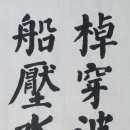 棹穿波
船壓水